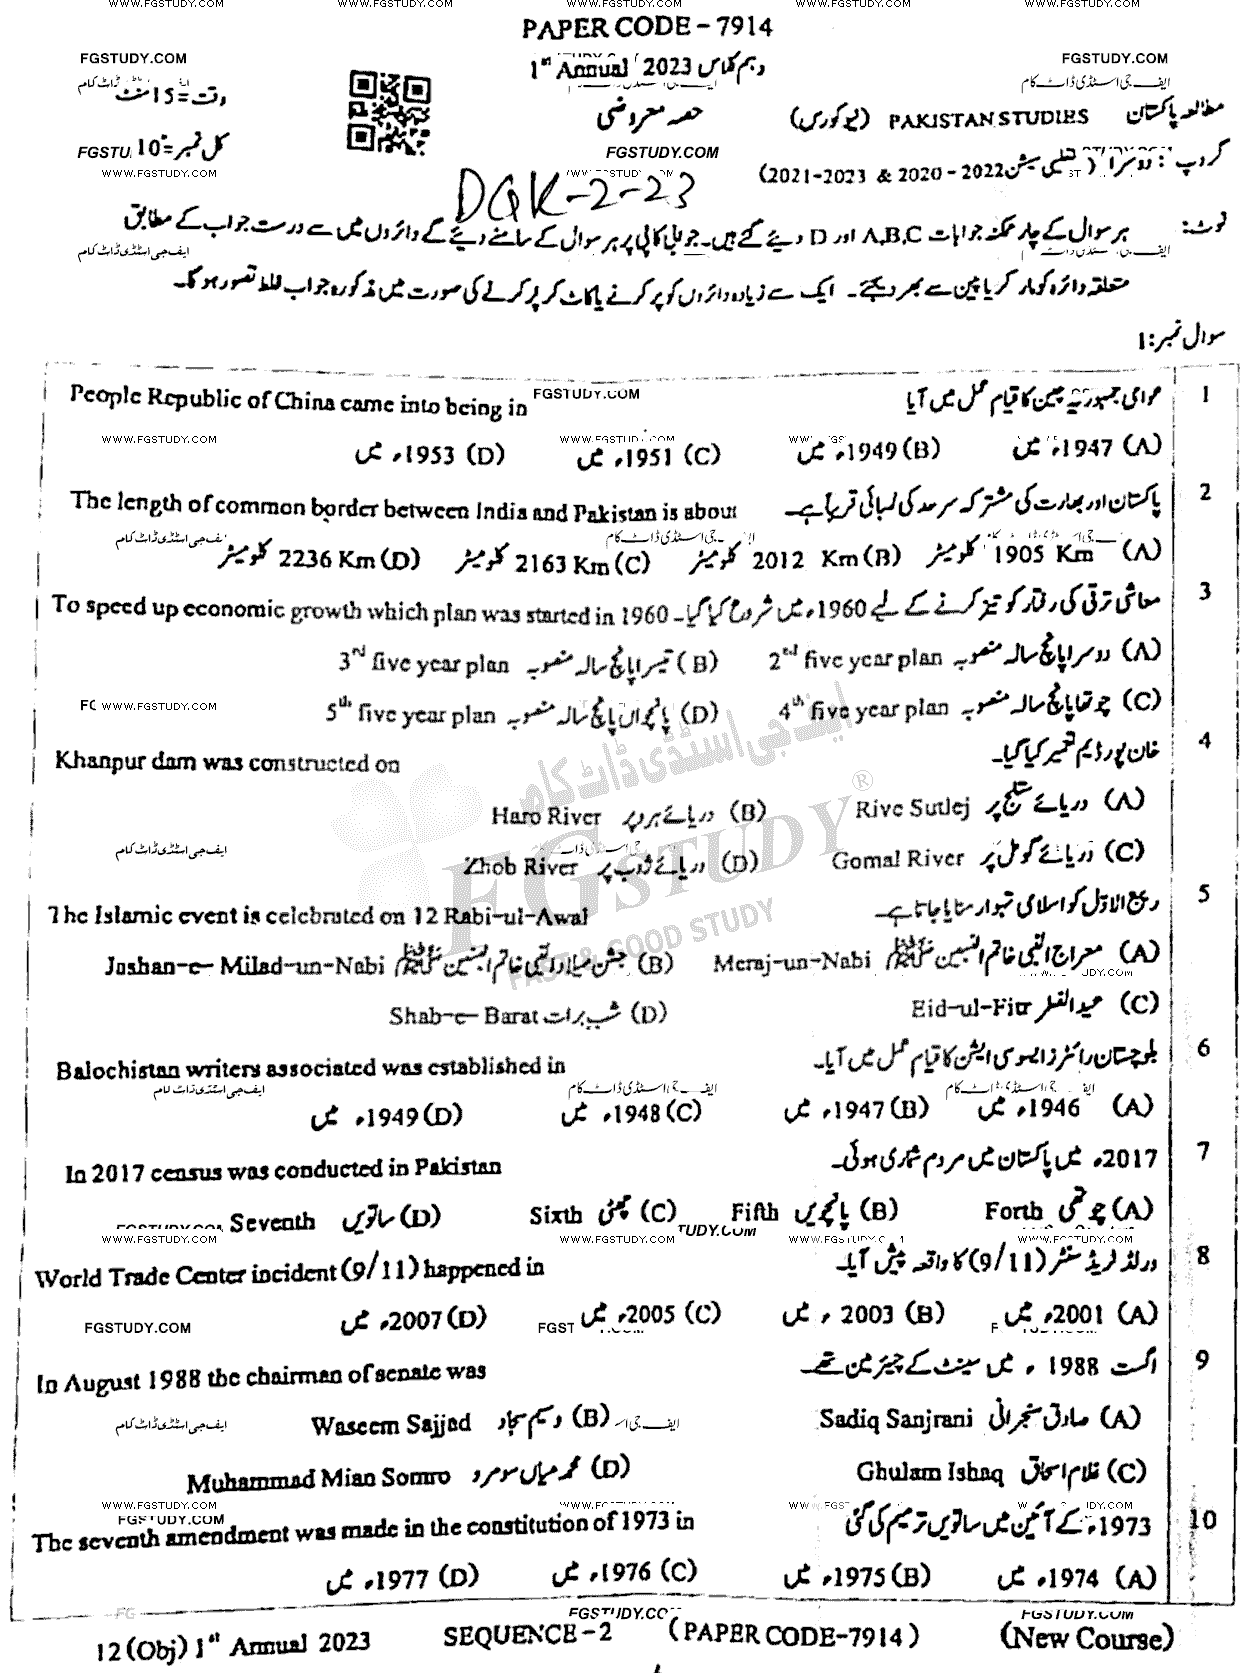 WWW.FGSTUDY.COM WWW.FGSTUDY.COM WWW.FGSTUDY.COM WWW.FGSTUDY.COM WWW.FGSTUDY.COM
PAPER CODE - 7914
FGSTUDY.COM 1st Annual 2023 دہم کلاس FGSTUDY.COM
ایف جی اسٹڈی ڈاٹ کام
وقت = 15 منٹ
مطالعہ پاکستان PAKISTAN STUDIES (لیو کوری) حصہ معروضی
کل نمبر = 10
FGSTUDY.COM
WWW.FGSTUDY.COM
گروپ : دوسرا (تعلیمی سیشن 2022 - 2020 & 2023-2021)
DGK-2-23
نوٹ: ہر سوال کے چار ممکنہ جوابات A,B,C اور D دیئے گئے ہیں۔ جوابی کاپی پر ہر سوال کے سامنے دیئے گئے دائروں میں سے درست جواب کے مطابق
متعلقہ دائرہ کو مارکر یا پین سے بھر دیجئے۔ ایک سے زیادہ دائروں کو پر کرنے یا کاٹ کر پر کرنے کی صورت میں مذکورہ جواب غلط تصور ہو گا۔
سوال نمبر:1
1 عوامی جمہوریہ چین کا قیام عمل میں آیا FGSTUDY.COM People Republic of China came into being in
(A) 1947ء میں (B) 1949ء میں (C) 1951ء میں (D) 1953ء میں
2 پاکستان اور بھارت کی مشترکہ سرحد کی لمبائی تقریباً ہے۔ The length of common border between India and Pakistan is about
(A) 1905 Km کلومیٹر (B) 2012 Km کلومیٹر (C) 2163 Km کلومیٹر (D) 2236 Km کلومیٹر
3 معاشی ترقی کی رفتار کو تیز کرنے کے لیے 1960ء میں شروع کیا گیا۔ To speed up economic growth which plan was started in 1960
(A) دوسرا پانچ سالہ منصوبہ 2nd five year plan (B) تیسرا پانچ سالہ منصوبہ 3rd five year plan
(C) چوتھا پانچ سالہ منصوبہ 4th five year plan (D) پانچواں پانچ سالہ منصوبہ 5th five year plan
4 خان پور ڈیم تعمیر کیا گیا۔ Khanpur dam was constructed on
(A) دریائے ستلج پر Rive Sutlej (B) دریائے ہرو پر Haro River
(C) دریائے گومل پر Gomal River (D) دریائے ژوب پر Zhob River
ایف جی اسٹڈی ڈاٹ کام
FGSTUDY®
FAST & GOOD STUDY
5 ربیع الاوّل کو اسلامی تہوار منایا جاتا ہے۔ The Islamic event is celebrated on 12 Rabi-ul-Awal
(A) معراج النبی خاتم النبیین ﷺ Meraj-un-Nabi (B) جشن میلاد النبی خاتم النبیین ﷺ Jashan-e- Milad-un-Nabi
(C) عید الفطر Eid-ul-Fitr (D) شب برات Shab-e- Barat
6 بلوچستان رائٹرز ایسوسی ایشن کا قیام عمل میں آیا۔ Balochistan writers associated was established in
(A) 1946ء میں (B) 1947ء میں (C) 1948ء میں (D) 1949ء میں
7 2017ء میں پاکستان میں مردم شماری ہوئی۔ In 2017 census was conducted in Pakistan
(A) چوتھی Forth (B) پانچویں Fifth (C) چھٹی Sixth (D) ساتویں Seventh
8 ورلڈ ٹریڈ سنٹر (9/11) کا واقعہ پیش آیا۔ World Trade Center incident (9/11) happened in
(A) 2001ء میں (B) 2003ء میں (C) 2005ء میں (D) 2007ء میں
9 اگست 1988ء میں سینٹ کے چیئرمین تھے۔ In August 1988 the chairman of senate was
(A) صادق سنجرانی Sadiq Sanjrani (B) وسیم سجاد Waseem Sajjad
(C) غلام اسحاق Ghulam Ishaq (D) محمد میاں سومرو Muhammad Mian Somro
10 1973ء کے آئین میں ساتویں ترمیم کی گئی The seventh amendment was made in the constitution of 1973 in
(A) 1974ء میں (B) 1975ء میں (C) 1976ء میں (D) 1977ء میں
12 (Obj) 1st Annual 2023 SEQUENCE - 2 (PAPER CODE-7914) (New Course)